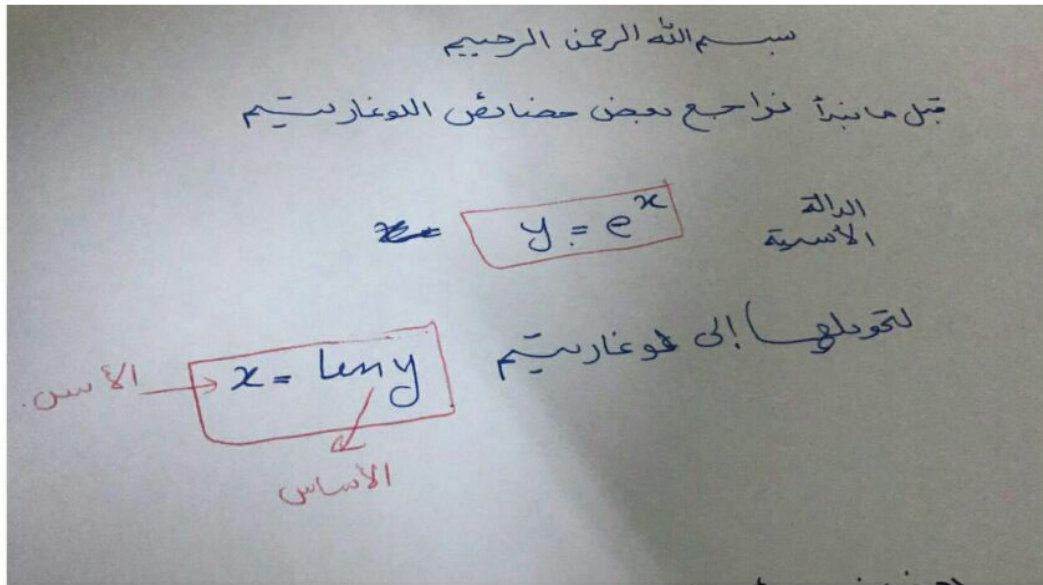 بسم الله الرحمن الرحيم
قبل ما نبدأ نراجع بعض خصائص اللوغاريتيم
الدالة
الأسية
y = e^x
لتحويلها إلى لوغاريتيم
x = lny
الأس
الأساس